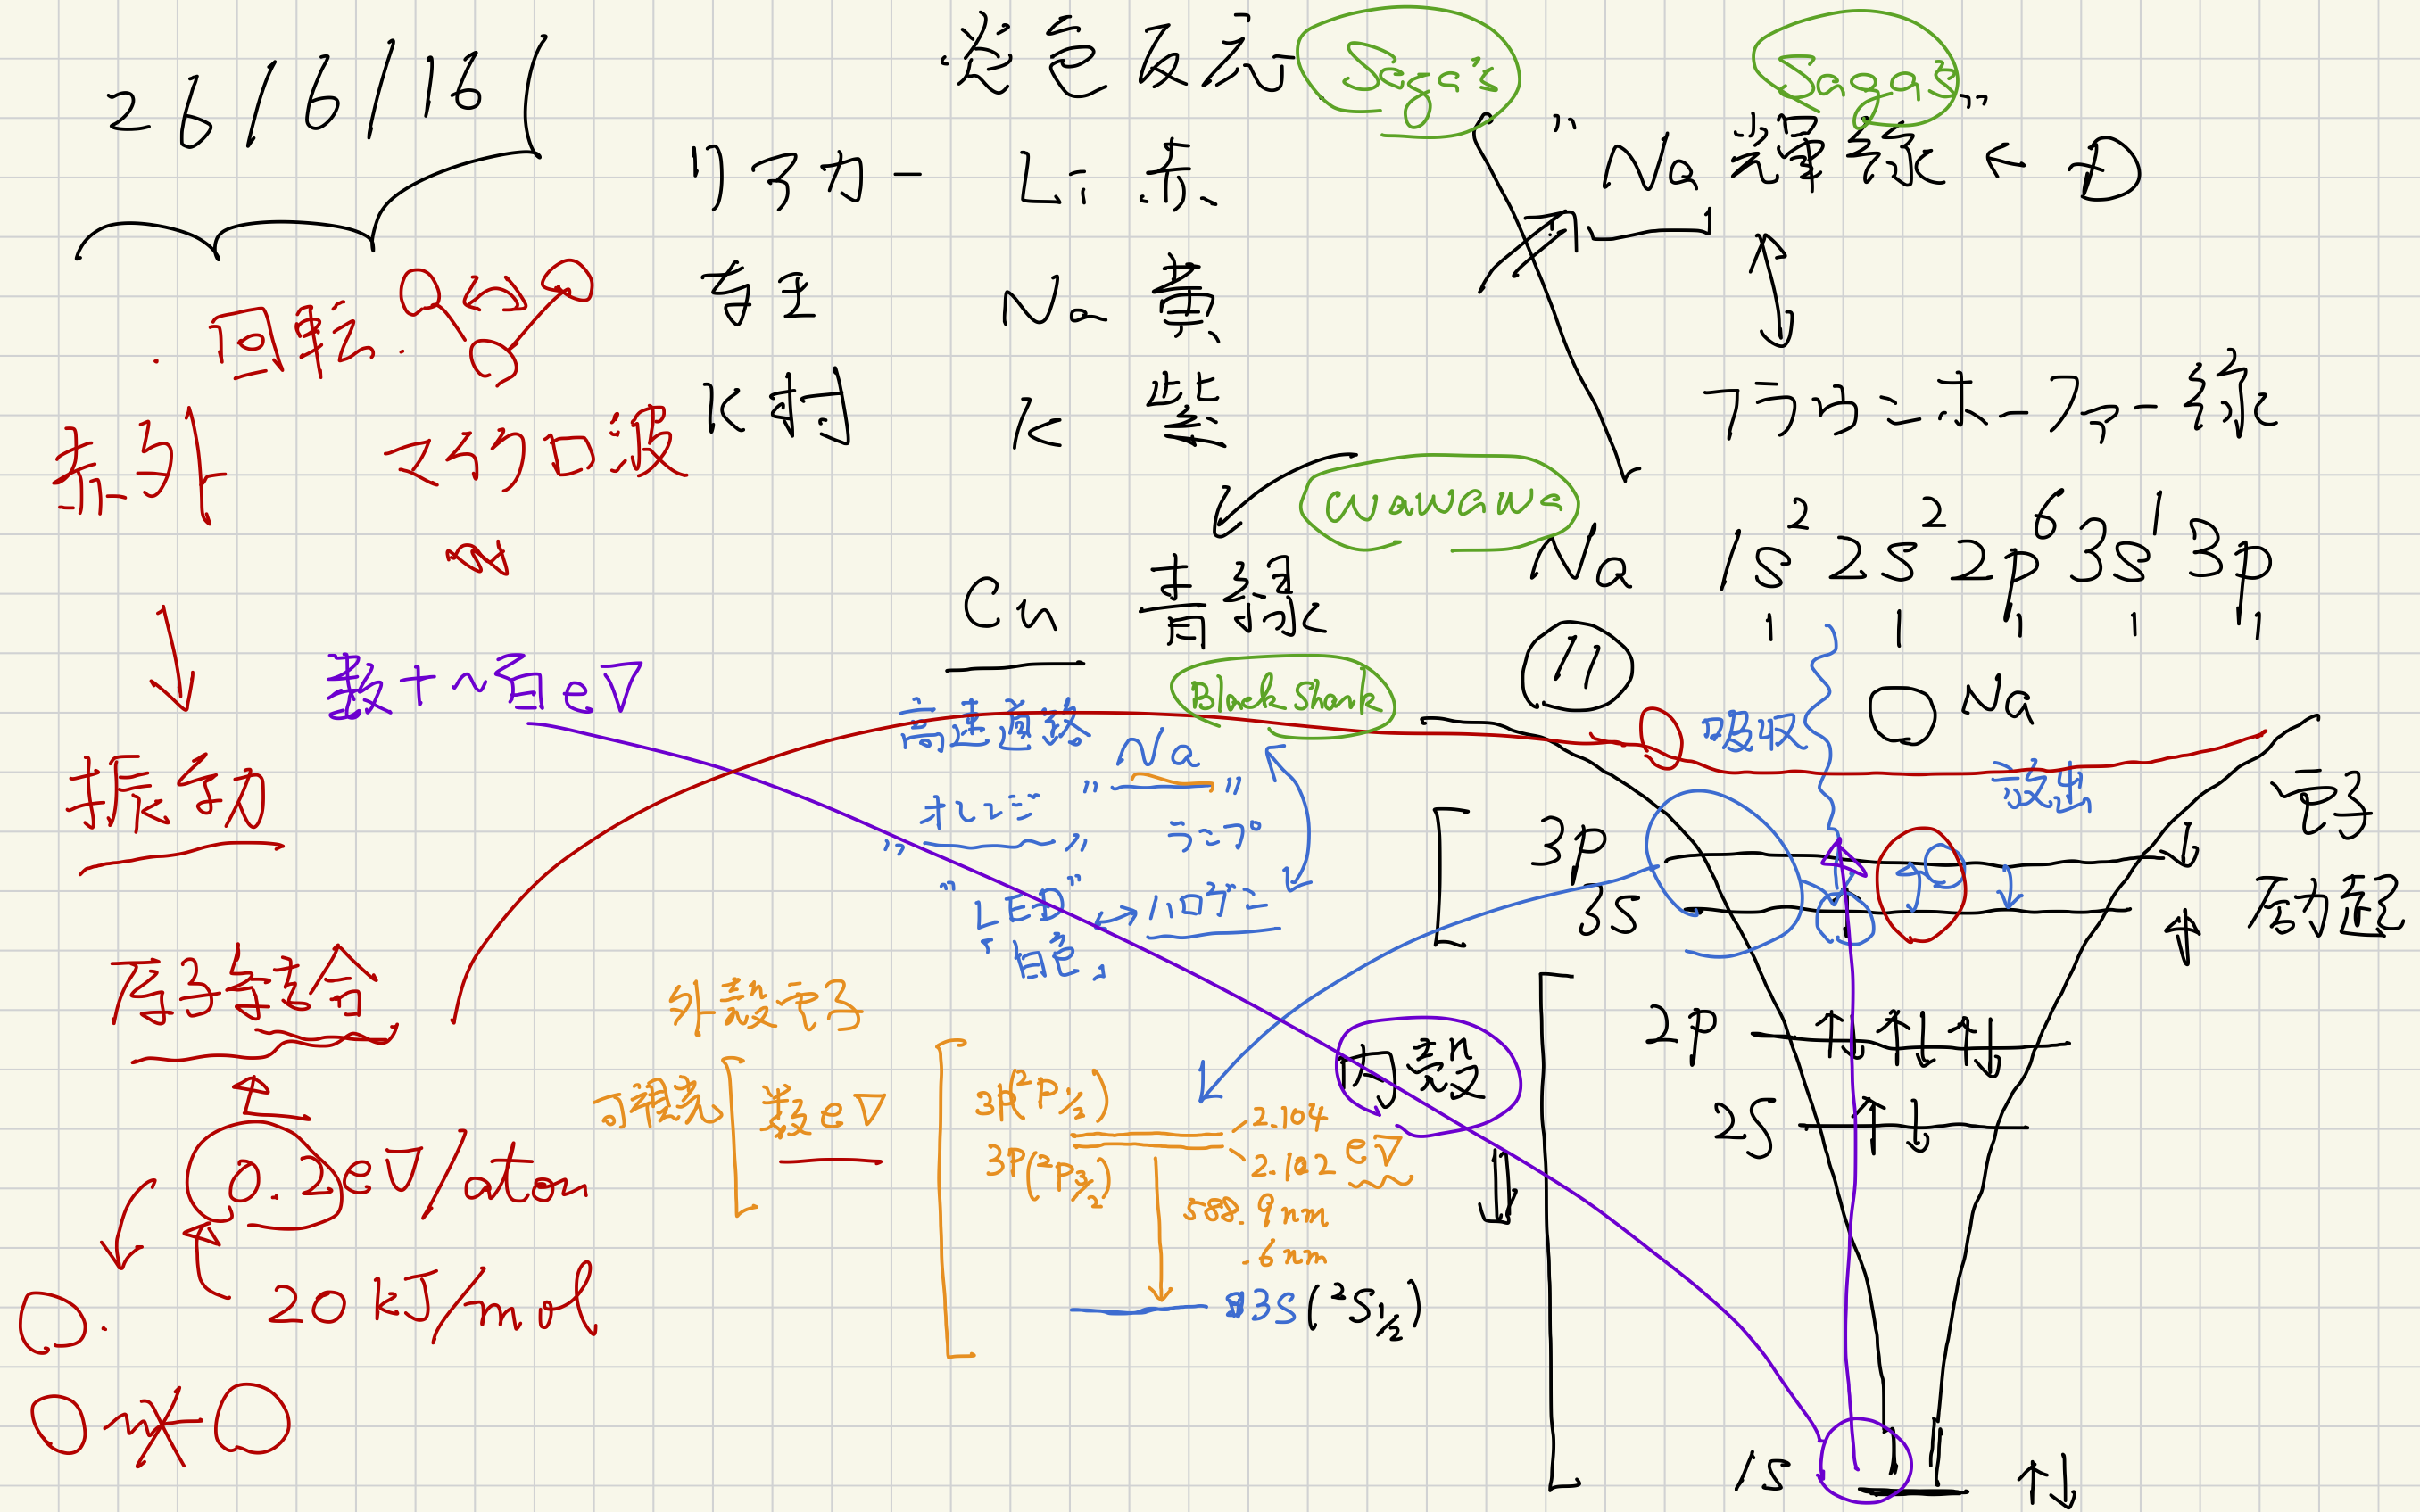 26/6/16(
炎色反応 Saga's
"Na 輝線 ← D
Saga's"
リアカー Li 赤
Na 黄
K村 K 紫
フラウンホーファー線
wawawa
Cu 青緑
Na 1s² 2s² 2p⁶ 3s¹ 3p
11
Na
吸収
放出
電子
励起
3p
3s
2p
2s
1s
内殻
回転
赤外
マイクロ波
振動
原子等結合
0.2eV/atom
20kJ/mol
数十~百eV
Black Shark
高速道路
Na
"オレンジ" ランプ
"LED" ↔ ハロゲン
「白色」
外殻電子
可視光
数eV
3p(²P½)
3p(²P3/2)
2.104
2.102 eV
588.9nm
.6nm
3s(²S½)